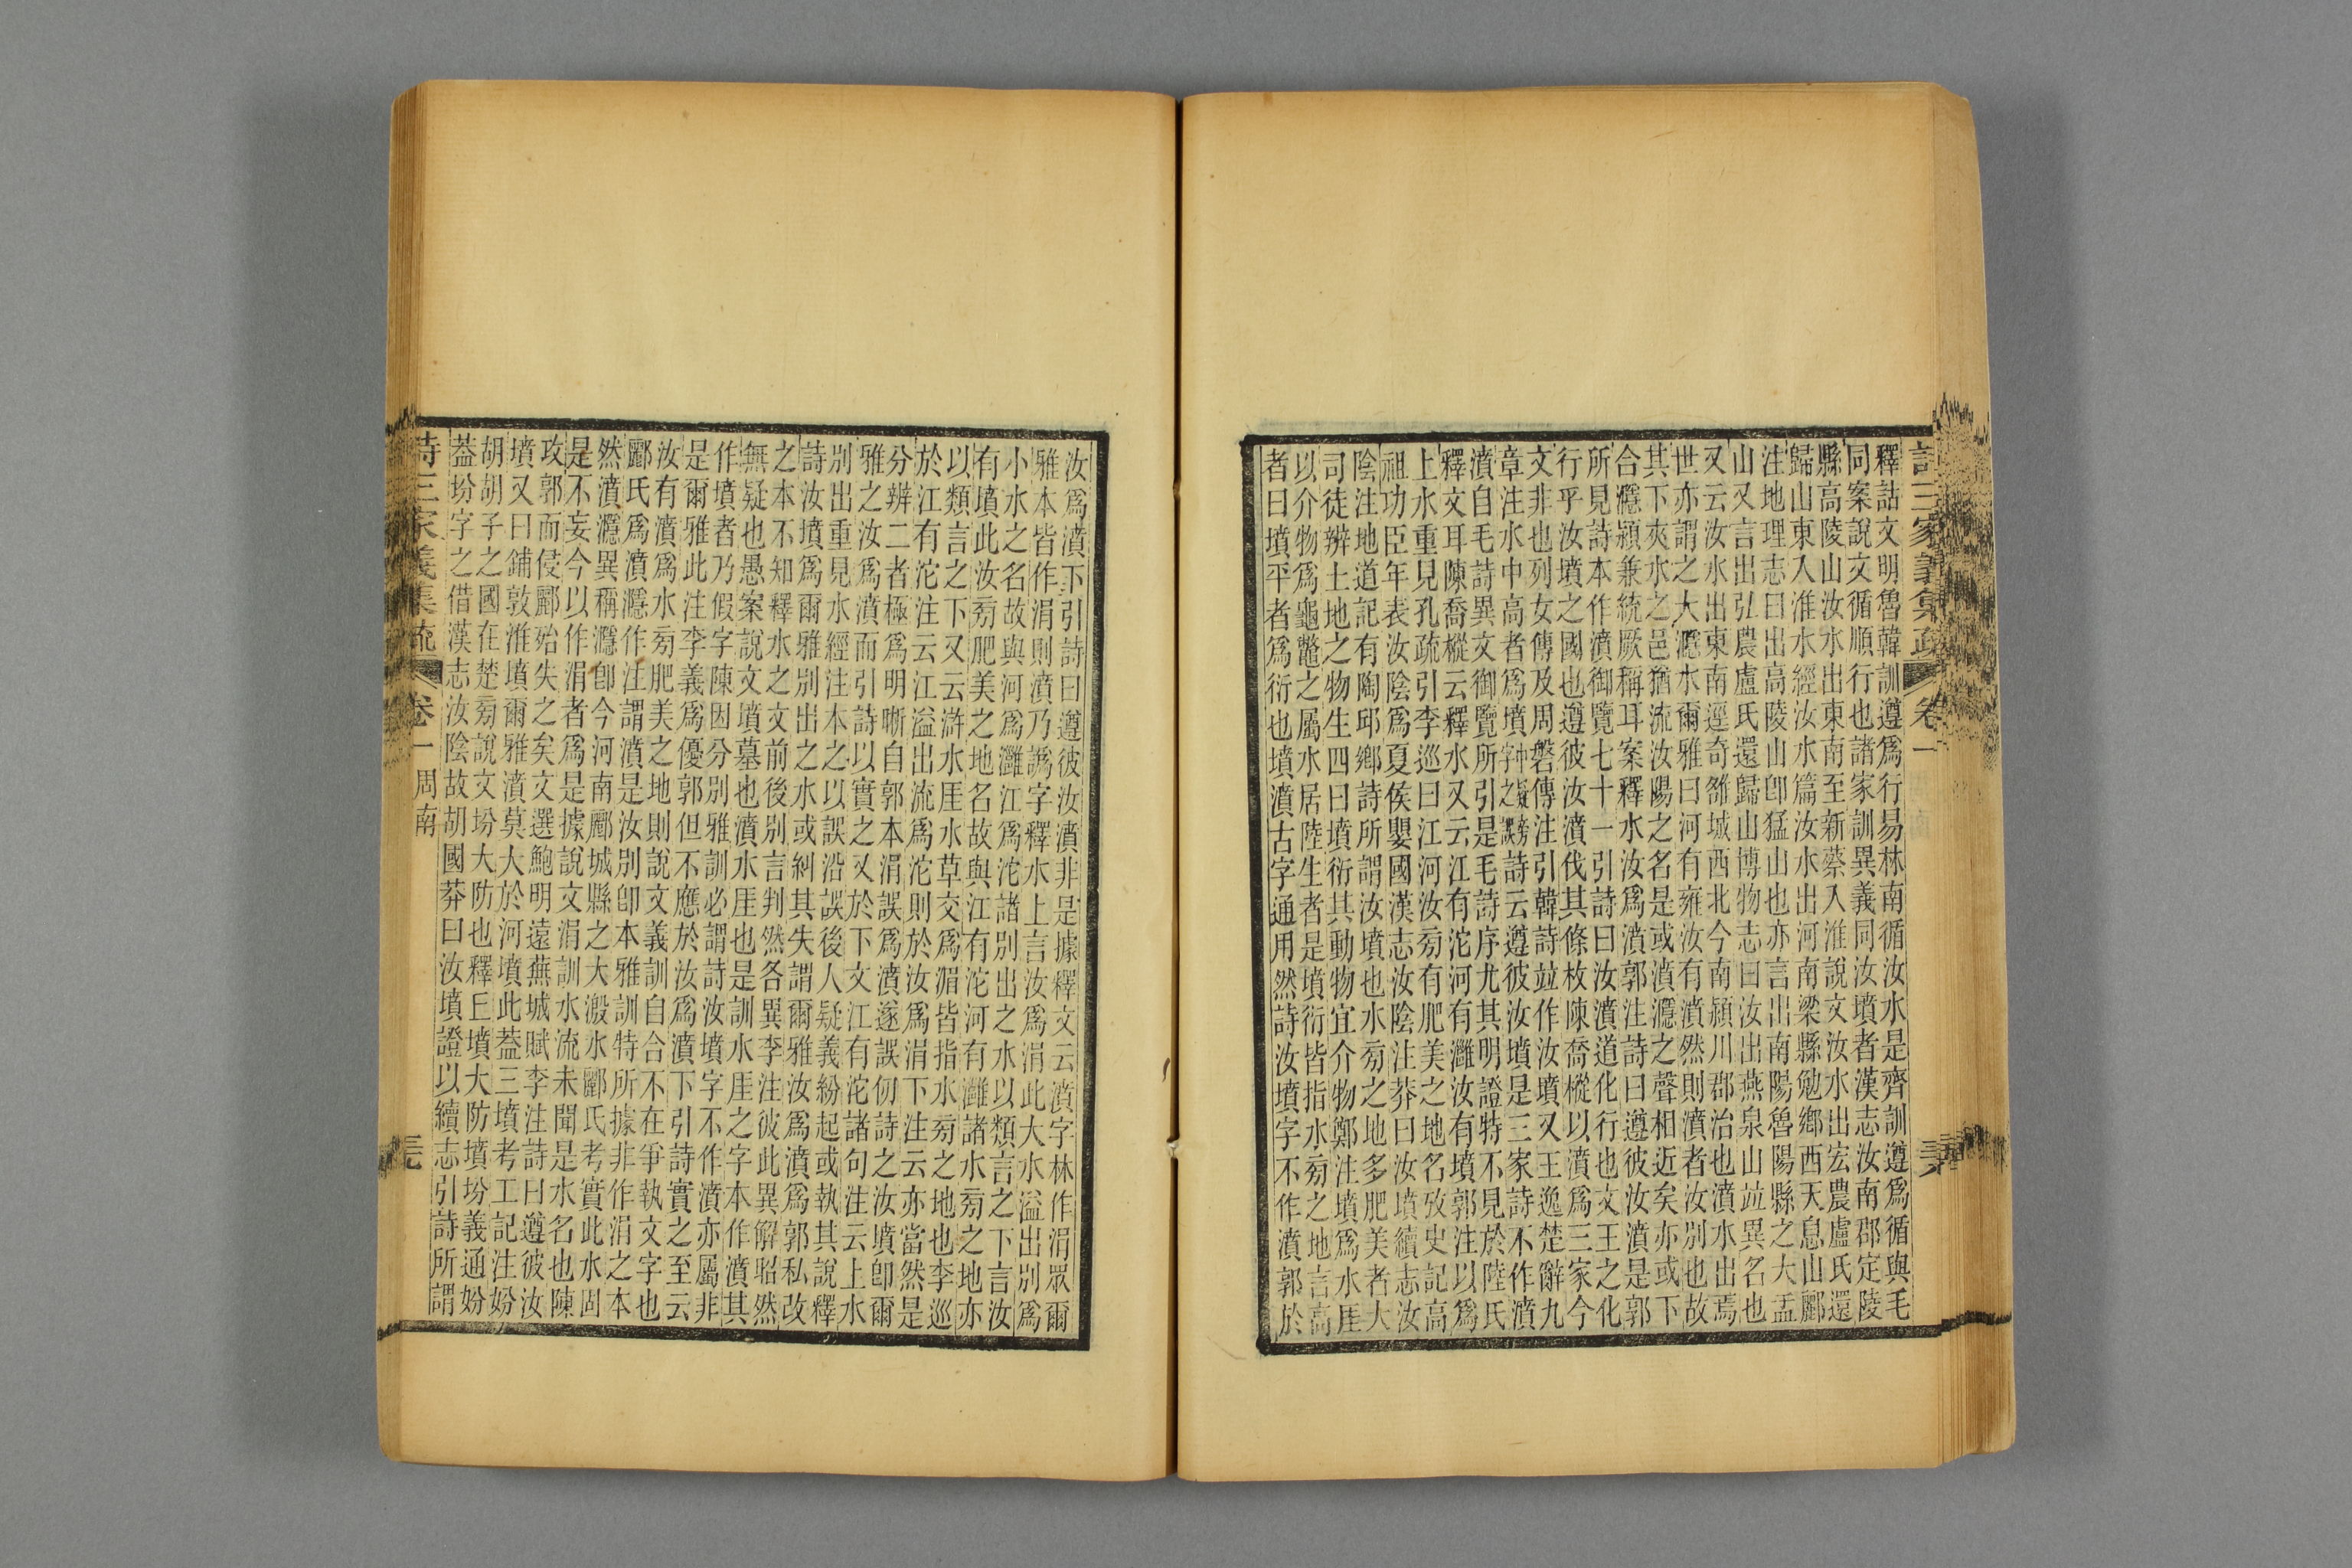 詩三家義集疏 卷一
釋詁文明魯韓訓遵爲行易林南循汝水是齊訓遵爲循與毛
同案說文循順行也諸家訓異義同汝墳者漢志汝南郡定陵
縣高陵山汝水出東南至新蔡入淮說文汝水出宏農盧氏還
歸山東入淮水經汝水篇汝水出河南梁縣勉鄉西天息山酈
注地理志曰出高陵山卽猛山也亦言出南陽魯陽縣之大盂
山又言出弘農盧氏還歸山博物志曰汝出燕泉山竝異名也
又云汝水出東南逕奇雒城西北今南潁川郡治也濆水出焉
世亦謂之大㶏水爾雅曰河有雍汝有濆然則濆者汝別也故
其下夾水之邑猶流汝陽之名是或濆㶏之聲相近矣亦或下
合㶏潁兼統厥稱耳案釋水汝爲濆郭注詩曰遵彼汝濆是郭
所見詩本作濆御覽七十一引詩曰汝濆道化行也文王之化
行乎汝墳之國也遵彼汝濆伐其條枚陳喬樅以濆爲三家今
文非也列女傳及周磐傳注引韓詩竝作汝墳又王逸楚辭九
章注水中高者爲墳中疑旁字之誤詩云遵彼汝墳是三家詩不作濆
濆自毛詩異文御覽所引是毛詩序尤其明證特不見於陸氏
釋文耳陳喬樅云釋水又云江有沱河有灉汝有墳郭注以爲
上水重見孔疏引李巡曰江河汝旁有肥美之地名攷史記高
祖功臣年表汝陰爲夏侯嬰國漢志汝陰注莽曰汝墳續志汝
陰注地道記有陶邱鄉詩所謂汝墳也水旁之地多肥美者大
司徒辨土地之物生四曰墳衍其動物宜介物鄭注墳爲水厓
以介物爲龜鼈之屬水居陸生者是墳衍皆指水旁之地言高
者曰墳平者爲衍也墳濆古字通用然詩汝墳字不作濆郭於
汝爲濆下引詩曰遵彼汝濆非是據釋文云濆字林作涓眾爾
雅本皆作涓則濆乃譌字釋水上言汝爲涓此大水溢出別爲
小水之名故與河爲灉江爲沱諸別出之水以類言之下言汝
有墳此汝旁肥美之地名故與江有沱河有灉諸水旁之地亦
以類言之下又云滸水厓水草交爲湄皆指水旁之地也李巡
於江有沱注云江溢出流爲沱則於汝爲涓下注云亦當然是
分辨二者極爲明晰自郭本涓誤爲濆遂誤仞詩之汝墳卽爾
雅之汝爲濆而引詩以實之又於下文江有沱諸句注云上水
別出重見水經注本之以誤沿誤後人疑義紛起或執其說釋
詩汝墳爲爾雅別出之水或糾其失謂爾雅汝爲濆爲郭私改
之本不知釋水之文前後別言判然各異李注彼此異解昭然
無疑也愚案說文墳墓也濆水厓也是訓水厓之字本作濆其
作墳者乃假字陳因分別雅訓必謂詩汝墳字不作濆亦屬非
是爾雅此注李義爲優郭但不應於汝爲濆下引詩實之至云
汝有濆爲水旁肥美之地則說文義訓自合不在爭執文字也
酈氏爲濆㶏作注謂濆是汝別卽本雅訓特所據非作涓之本
然濆㶏異稱㶏卽今河南郾城縣之大溵水酈氏考實此水固
是不妄今以作涓者爲是據說文涓訓水流未聞是水名也陳
攻郭而侵酈殆失之矣文選鮑明遠蕪城賦李注詩曰遵彼汝
墳又曰鋪敦淮墳爾雅濆莫大於河墳此蓋三墳考工記注妢
胡胡子之國在楚旁說文坋大防也釋𠀇墳大防墳坋義通妢
蓋坋字之借漢志汝陰故胡國莽曰汝墳證以續志引詩所謂
詩三家義集疏 卷一 周南